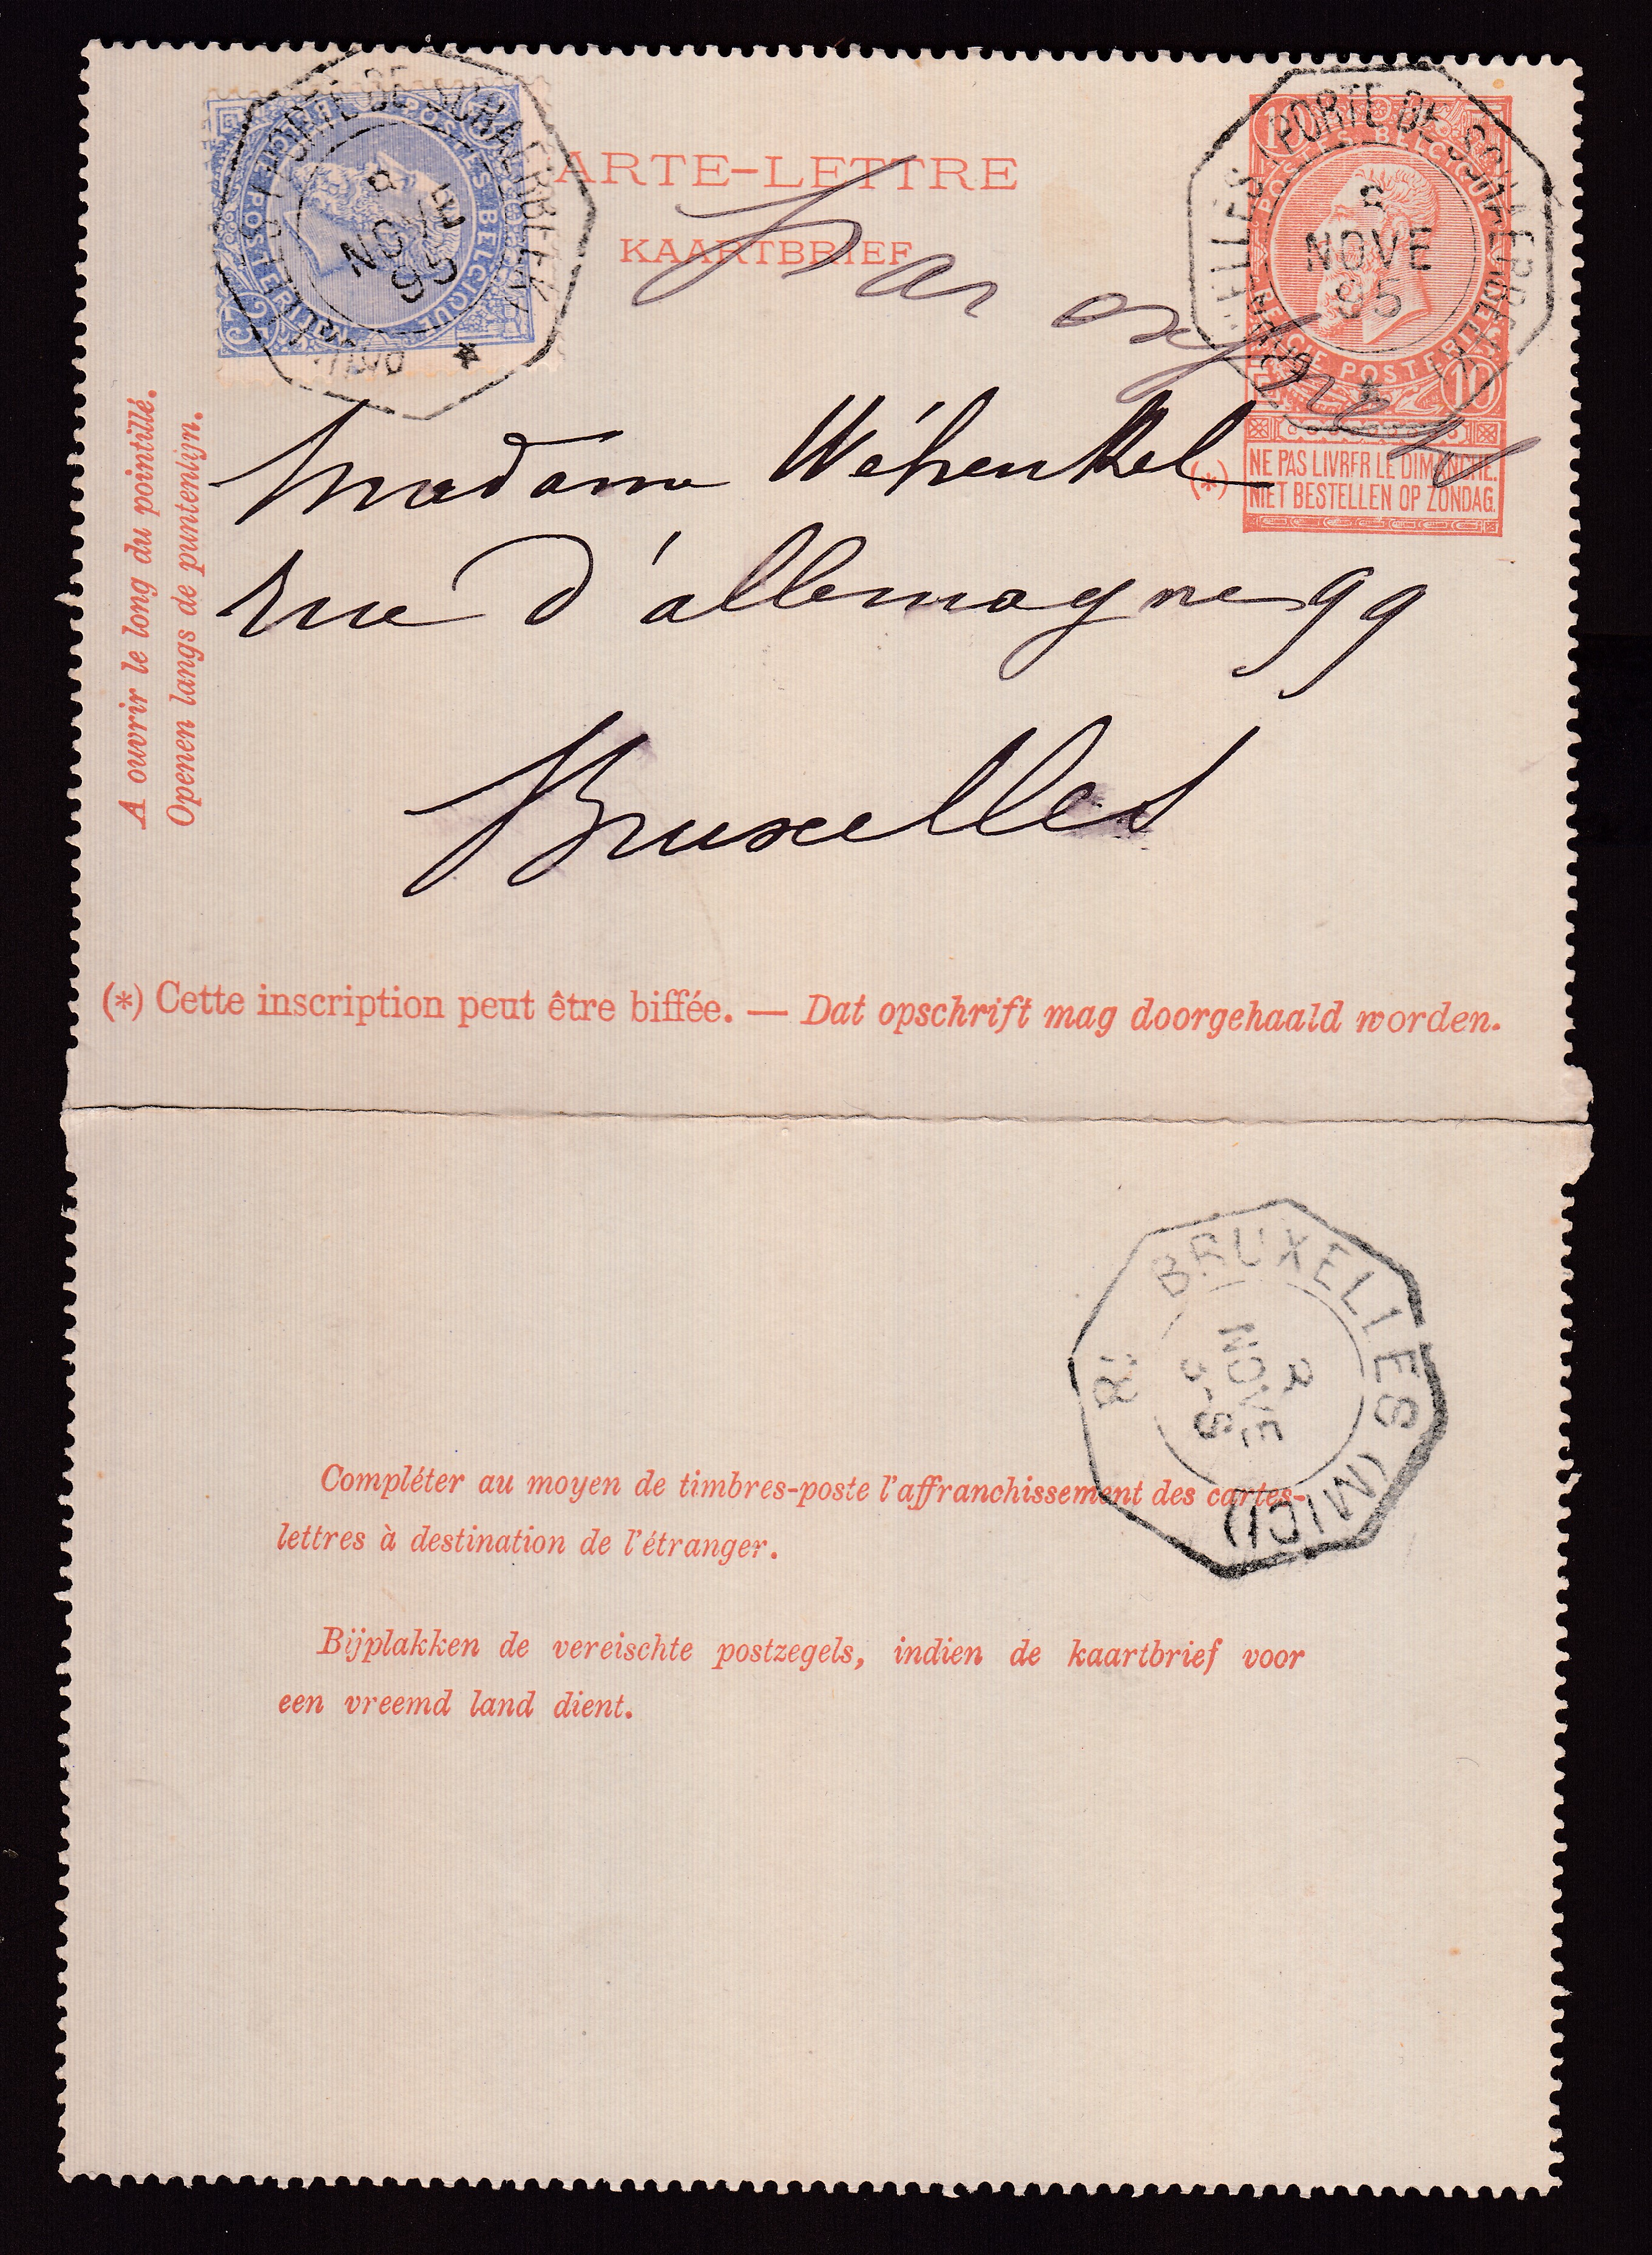 CARTE-LETTRE
KAARTBRIEF
Par exprès
PORTE DE SCHAERBEEK
8 NOVE 95
POSTES BELGIQUE
BELGIE POSTERIJEN
25
PORTE DE SCHAERBEEK
8
NOVE
95
10
POSTES BELGIQUE
BELGIE POSTERIJEN
10
(*) NE PAS LIVRER LE DIMANCHE.
NIET BESTELLEN OP ZONDAG.
A ouvrir le long du pointillé.
Openen langs de puntenlijn.
Madame Wéhenkel
rue d'allemagne 99
Bruxelles
(*) Cette inscription peut être biffée. — Dat opschrift mag doorgehaald worden.
BRUXELLES (MIDI)
NOVE
Compléter au moyen de timbres-poste l'affranchissement des cartes-
lettres à destination de l'étranger.
Bijplakken de vereischte postzegels, indien de kaartbrief voor
een vreemd land dient.